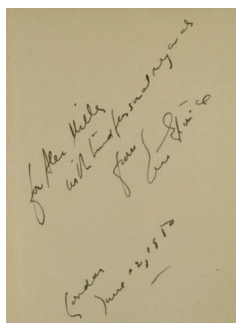 for Alec Miller
with kind personal regards
from
London
June 12, 1950